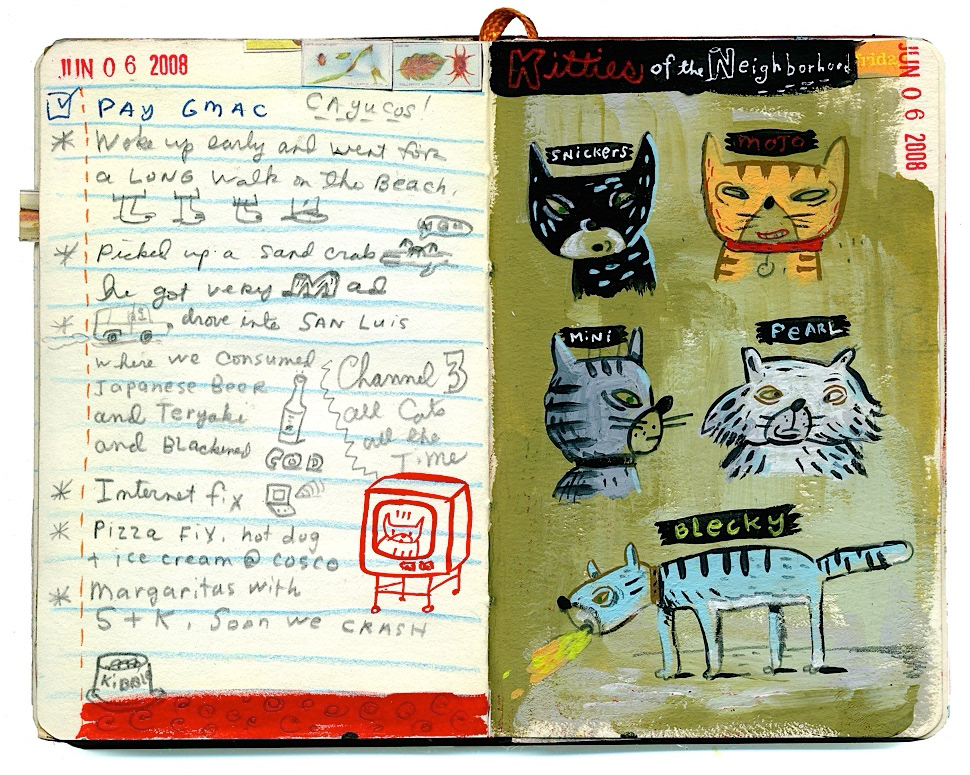 JUN 06 2008
PAY GMAC
CAyucos!
* Woke up early and went for
a LONG walk on the Beach.
* Picked up a sand crab
he got very Mad
* drove into SAN LUIS
where we consumed
Japanese Beer
and Teryaki
and Blackened
COD
Channel 3
all Cats
all the
Time
* Internet fix
* Pizza Fix, hot dog
+ ice cream @ cosco
* Margaritas with
S + K, Soon we CRASH
KiBBle
Kitties of the Neighborhood
Frida
JUN 06 2008
SNICKERS
MOJO
MiNi
PeARL
BLeCKy